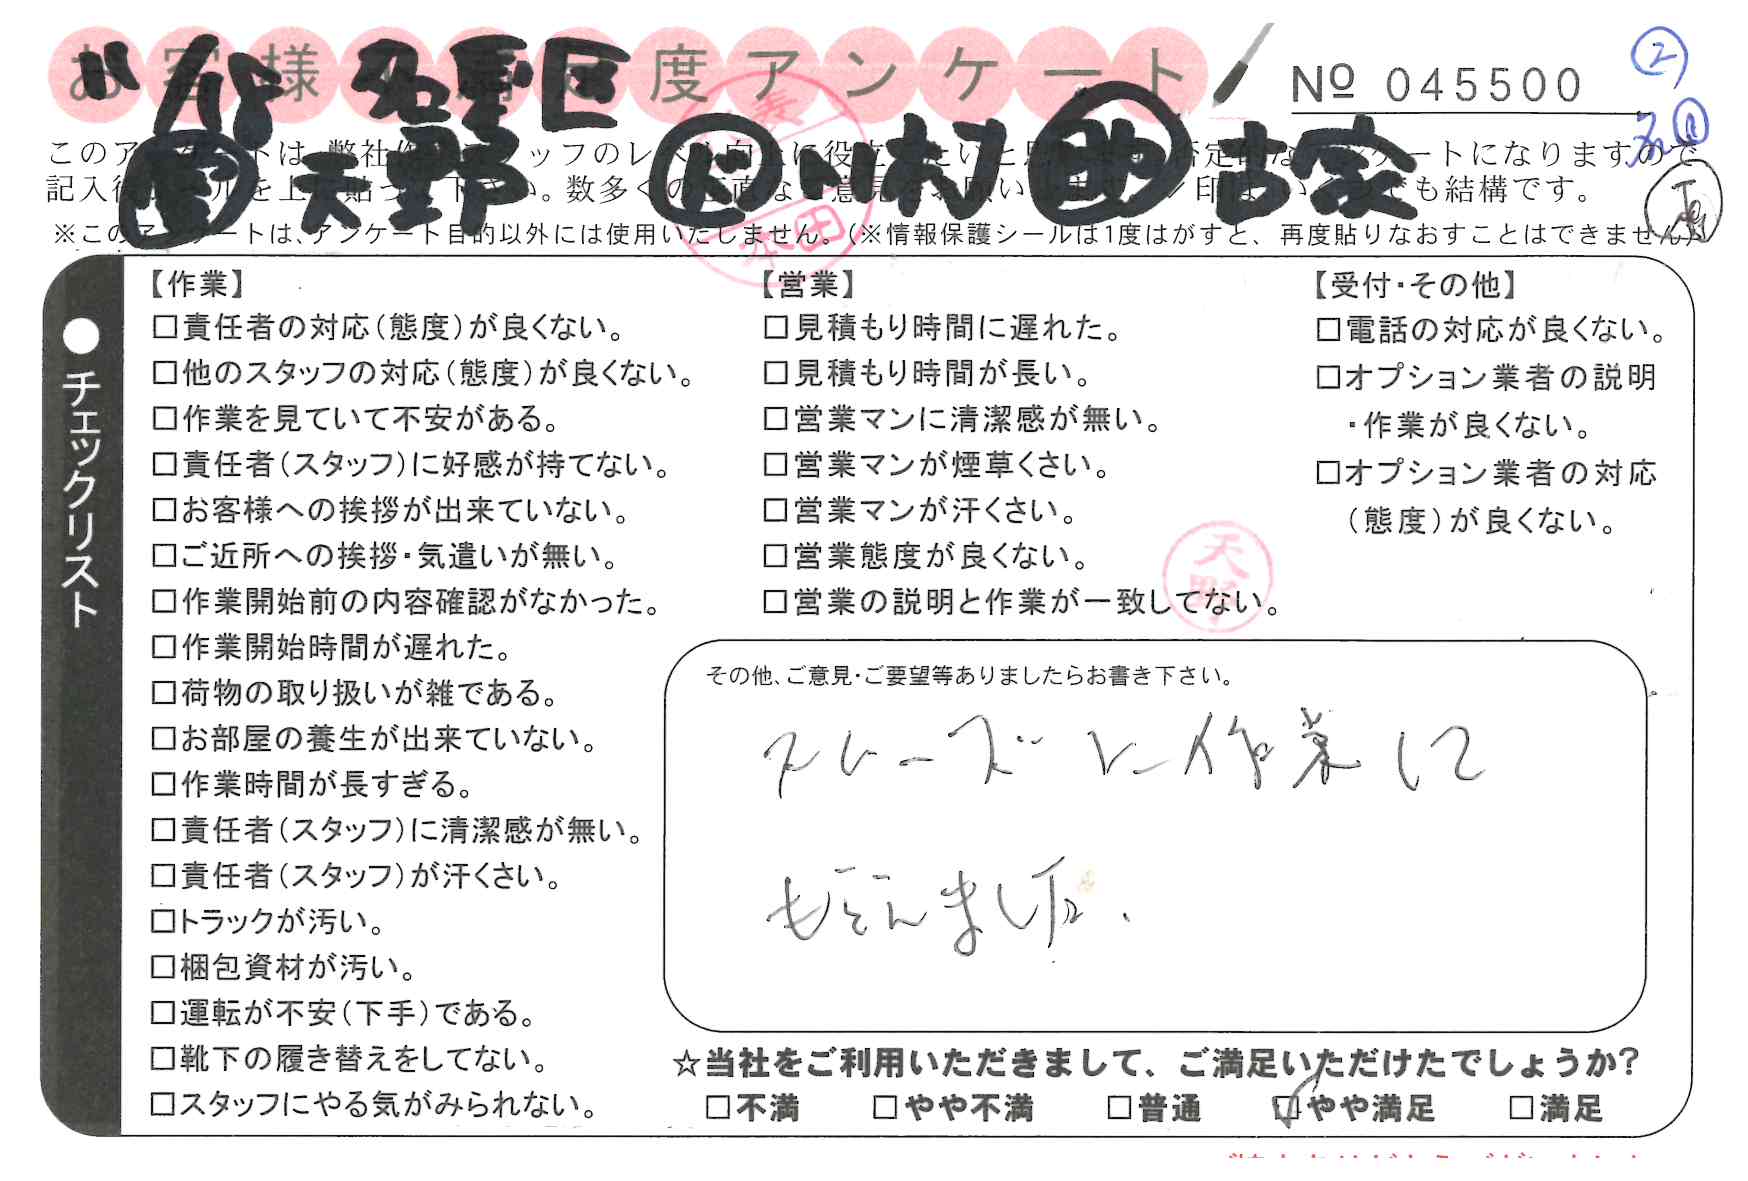 お客様 度アンケート
№ 045500
②
11/18 名東区
㊞ 天野 小村 古家
このア は、弊社 ッフのレベル向上に役立 たいと 否定的な ケートになりますので
記入後 ールを上 貼って下さい。数多くの 直な 意見をお願い 印は、いくつでも結構です。
※このアンケートは、アンケート目的以外には使用いたしません。(※情報保護シールは1度はがすと、再度貼りなおすことはできません)
●チェックリスト
【作業】
□責任者の対応(態度)が良くない。
□他のスタッフの対応(態度)が良くない。
□作業を見ていて不安がある。
□責任者(スタッフ)に好感が持てない。
□お客様への挨拶が出来ていない。
□ご近所への挨拶・気遣いが無い。
□作業開始前の内容確認がなかった。
□作業開始時間が遅れた。
□荷物の取り扱いが雑である。
□お部屋の養生が出来ていない。
□作業時間が長すぎる。
□責任者(スタッフ)に清潔感が無い。
□責任者(スタッフ)が汗くさい。
□トラックが汚い。
□梱包資材が汚い。
□運転が不安(下手)である。
□靴下の履き替えをしてない。
□スタッフにやる気がみられない。
【営業】
□見積もり時間に遅れた。
□見積もり時間が長い。
□営業マンに清潔感が無い。
□営業マンが煙草くさい。
□営業マンが汗くさい。
□営業態度が良くない。
□営業の説明と作業が一致してない。
天野
【受付・その他】
□電話の対応が良くない。
□オプション業者の説明
・作業が良くない。
□オプション業者の対応
(態度)が良くない。
その他、ご意見・ご要望等ありましたらお書き下さい。
スムーズに作業して
もらえました.
☆当社をご利用いただきまして、ご満足いただけたでしょうか?
□不満 □やや不満 □普通 ☑やや満足 □満足